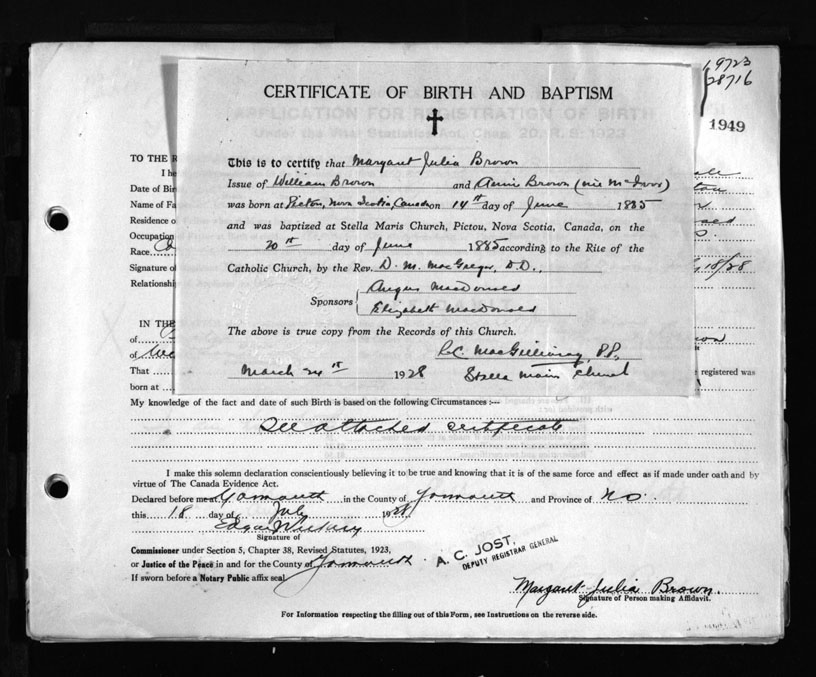 19723
28716
1949
CERTIFICATE OF BIRTH AND BAPTISM
This is to certify that Margaret Julia Brown
Issue of William Brown and Annie Brown (née McIvor)
was born at Pictou, Nova Scotia, Canada on 14th day of June 1885
and was baptized at Stella Maris Church, Pictou, Nova Scotia, Canada, on the
20th day of June 1885 according to the Rite of the
Catholic Church, by the Rev. D. M. MacGregor, D.D.,
Sponsors { Angus MacDonald
Elizabeth MacDonald
The above is true copy from the Records of this Church.
MacGillivray P.P.
March 24th 1928 Stella Maris Church
APPLICATION FOR REGISTRATION OF BIRTH
Under the Vital Statistics Act, Chap. 20, R. S. 1923
TO THE R
I he
Date of Bir
Name of Fa
Residence o
Occupation
Race
Signature o
Relationshi
18/28
IN THE
of
of
That registered was
born at
My knowledge of the fact and date of such Birth is based on the following Circumstances :—
See attached certificate
I make this solemn declaration conscientiously believing it to be true and knowing that it is of the same force and effect as if made under oath and by
virtue of The Canada Evidence Act.
Declared before me at Yarmouth in the County of Yarmouth and Province of N.S.
this 18 day of July 1928
Edgar
Signature of
Commissioner under Section 5, Chapter 38, Revised Statutes, 1923,
or Justice of the Peace in and for the County of Yarmouth
If sworn before a Notary Public affix seal
A. C. JOST,
DEPUTY REGISTRAR GENERAL
Margaret Julia Brown.
Signature of Person making Affidavit.
For Information respecting the filling out of this Form, see Instructions on the reverse side.